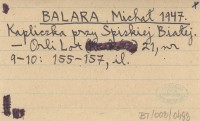 BALARA Michał 1947.
Kapliczka przy Spiskiej Białej.
— Orli Lot 21, nr
9-10: 155-157, il.